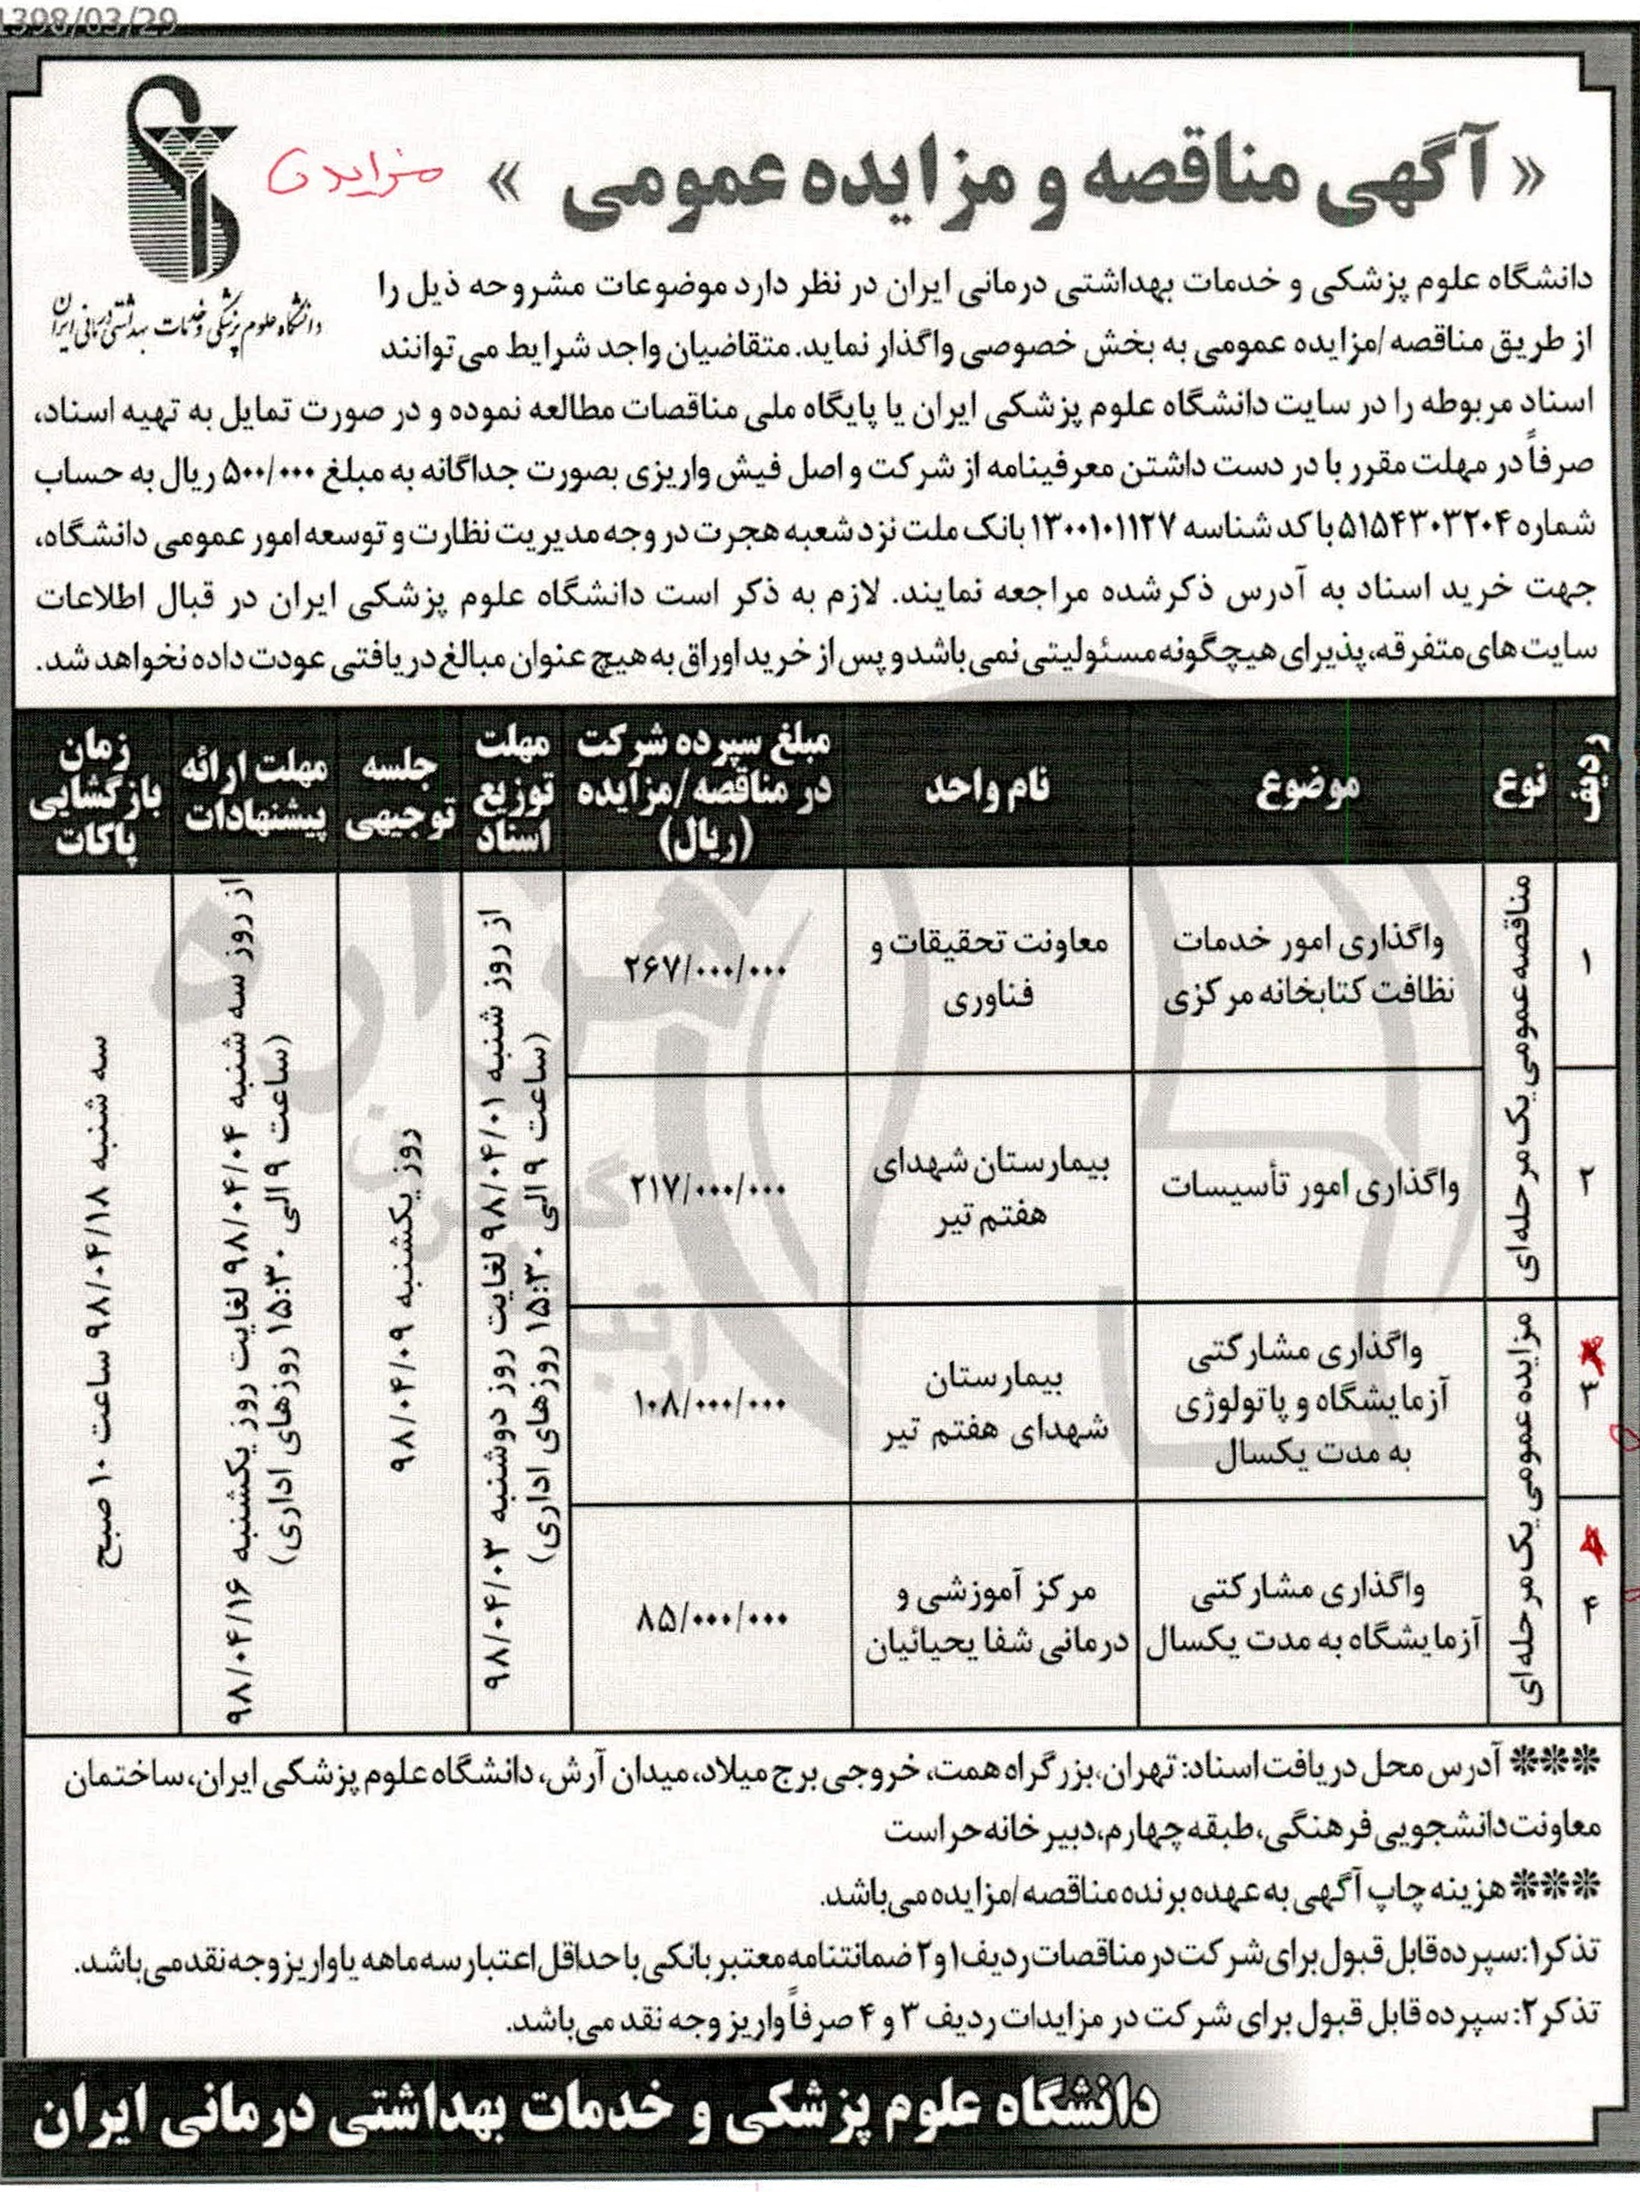 1398/03/29
« آگهی مناقصه و مزایده عمومی »
مزایدی
دانشگاه علوم پزشکی و خدمات بهداشتی درمانی ایران
دانشگاه علوم پزشکی و خدمات بهداشتی درمانی ایران در نظر دارد موضوعات مشروحه ذیل را
از طریق مناقصه/مزایده عمومی به بخش خصوصی واگذار نماید. متقاضیان واجد شرایط می‌توانند
اسناد مربوطه را در سایت دانشگاه علوم پزشکی ایران یا پایگاه ملی مناقصات مطالعه نموده و در صورت تمایل به تهیه اسناد،
صرفاً در مهلت مقرر با در دست داشتن معرفینامه از شرکت و اصل فیش واریزی بصورت جداگانه به مبلغ ۵۰۰/۰۰۰ ریال به حساب
شماره ۵۱۵۴۳۰۳۲۰۴ با کد شناسه ۱۳۰۰۱۰۱۱۲۷ بانک ملت نزد شعبه هجرت در وجه مدیریت نظارت و توسعه امور عمومی دانشگاه،
جهت خرید اسناد به آدرس ذکرشده مراجعه نمایند. لازم به ذکر است دانشگاه علوم پزشکی ایران در قبال اطلاعات
سایت‌های متفرقه، پذیرای هیچگونه مسئولیتی نمی‌باشد و پس از خرید اوراق به هیچ عنوان مبالغ دریافتی عودت داده نخواهد شد.
ردیف
نوع
موضوع
نام واحد
مبلغ سپرده شرکت
در مناقصه/مزایده
(ریال)
مهلت
توزیع
اسناد
جلسه
توجیهی
مهلت ارائه
پیشنهادات
زمان
بازگشایی
پاکات
۱
مناقصه عمومی یک مرحله‌ای
واگذاری امور خدمات
نظافت کتابخانه مرکزی
معاونت تحقیقات و
فناوری
۲۶۷/۰۰۰/۰۰۰
از روز شنبه ۹۸/۰۴/۰۱ لغایت روز دوشنبه ۹۸/۰۴/۰۳
(ساعت ۹ الی ۱۵:۳۰ روزهای اداری)
روز یکشنبه ۹۸/۰۴/۰۹
از روز سه شنبه ۹۸/۰۴/۰۴ لغایت روز یکشنبه ۹۸/۰۴/۱۶
(ساعت ۹ الی ۱۵:۳۰ روزهای اداری)
سه شنبه ۹۸/۰۴/۱۸ ساعت ۱۰ صبح
۲
واگذاری امور تأسیسات
بیمارستان شهدای
هفتم تیر
۲۱۷/۰۰۰/۰۰۰
۳
مزایده عمومی یک مرحله‌ای
واگذاری مشارکتی
آزمایشگاه و پاتولوژی
به مدت یکسال
بیمارستان
شهدای هفتم تیر
۱۰۸/۰۰۰/۰۰۰
۴
واگذاری مشارکتی
آزمایشگاه به مدت یکسال
مرکز آموزشی و
درمانی شفا یحیائیان
۸۵/۰۰۰/۰۰۰
*** آدرس محل دریافت اسناد: تهران، بزرگراه همت، خروجی برج میلاد، میدان آرش، دانشگاه علوم پزشکی ایران، ساختمان
معاونت دانشجویی فرهنگی، طبقه چهارم، دبیرخانه حراست
*** هزینه چاپ آگهی به عهده برنده مناقصه/مزایده می‌باشد.
تذکر۱: سپرده قابل قبول برای شرکت در مناقصات ردیف ۱ و ۲ ضمانتنامه معتبر بانکی با حداقل اعتبار سه ماهه یا واریز وجه نقد می‌باشد.
تذکر۲: سپرده قابل قبول برای شرکت در مزایدات ردیف ۳ و ۴ صرفاً واریز وجه نقد می‌باشد.
دانشگاه علوم پزشکی و خدمات بهداشتی درمانی ایران